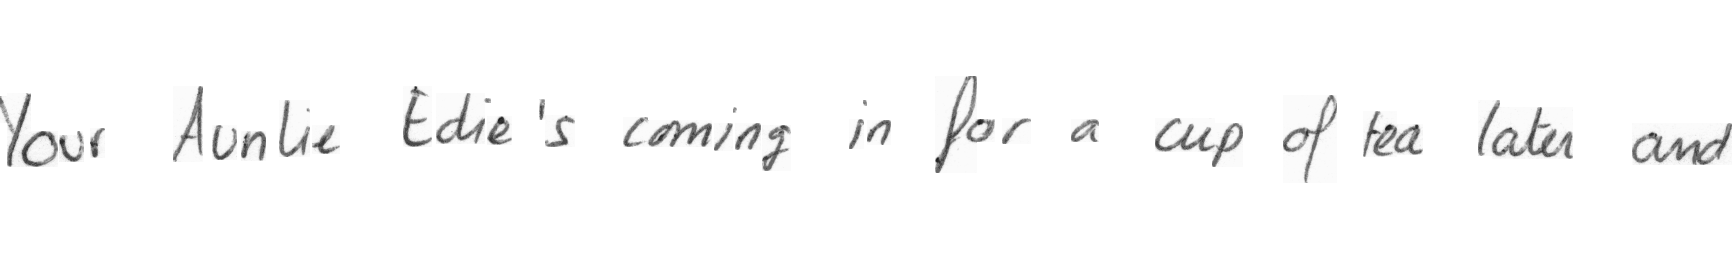 Your Auntie Edie's coming in for a cup of tea later and